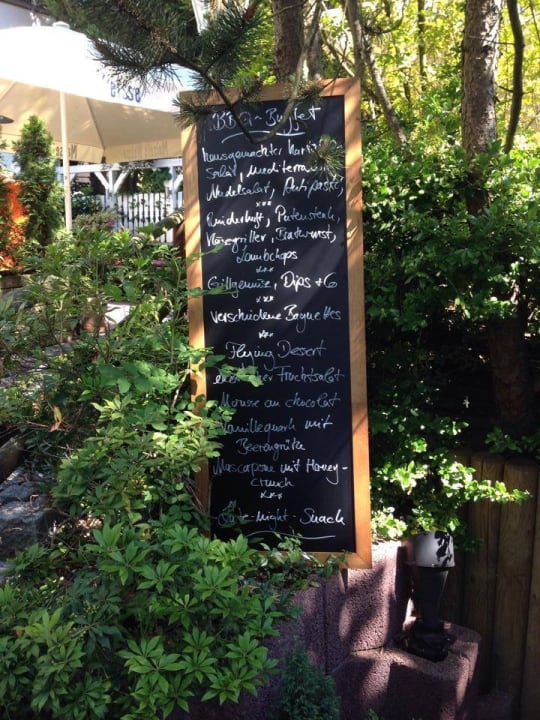 BBQ-Buffet
hausgemachter Kartoffel
Salat, Mediterraner
Nudelsalat, Antipasti,
***
Rinderhüft, Putensteak,
Käsegriller, Bratwurst,
Lambchops
***
Grillgemüse, Dips + Co
***
verschiedene Baguettes
***
Flying Dessert
exotischer Fruchtsalat
Mousse au chocolat
Vanillequark mit
Beerengrütze
Mascarpone mit Honey-
crunch
***
Late-night-Snack